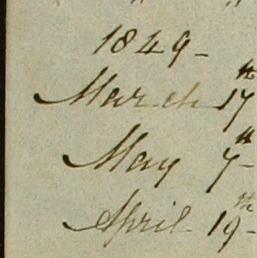 1849-
March 17th
May 7th-
April 19th-